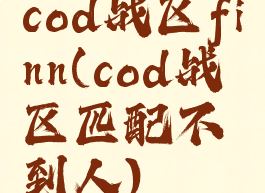 cod战区fi
nn(cod战
区匹配不
到人)